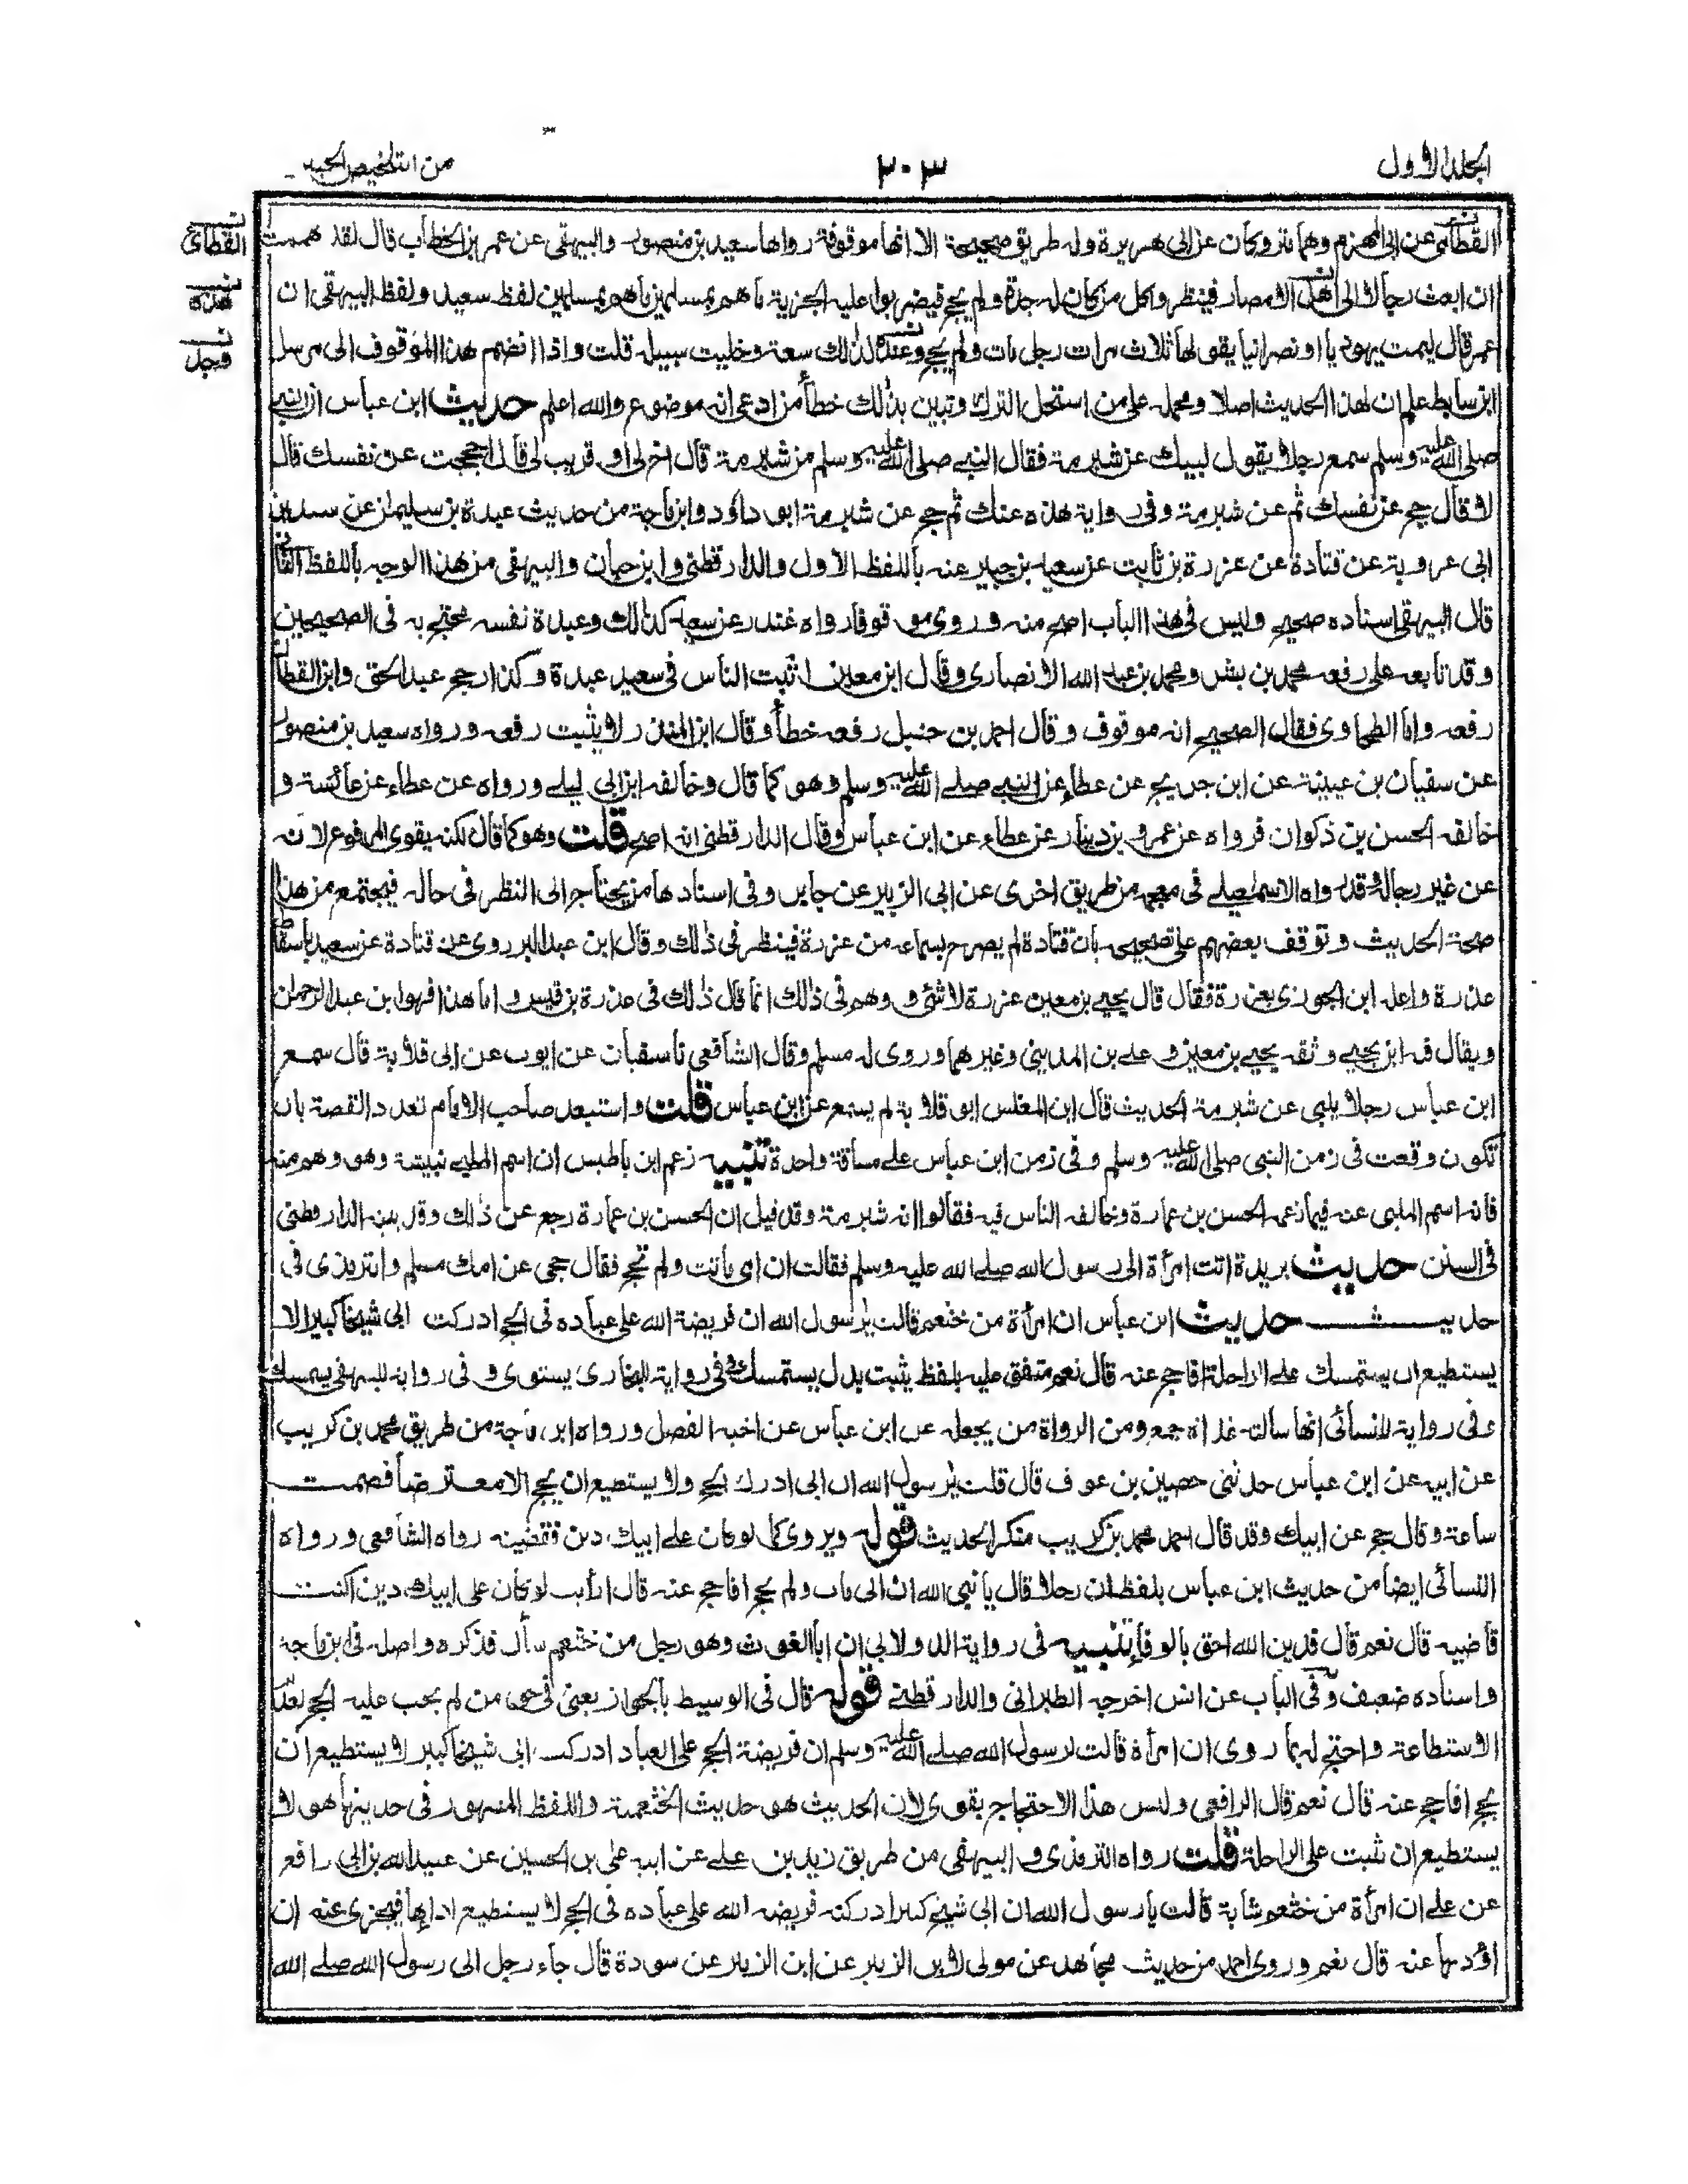 الجلد الاول
٢٠٣
من التلخيص الحبير
القطامى عن ابى المهزم وهما متروكان عن ابى هريرة وله طريق صحيحة الا انها موقوفة رواها سعيد بن منصور والبيهقى عن عمر بن الخطاب قال لقد هممت
القطاى
ان ابعث رجالا الى اهل الامصار فينظروا كل من كان له جدة ولم يحج فيضربوا عليه الجزية ما هم بمسلمين ما هم بمسلمين لفظ سعيد ولفظ البيهقى ان
هذه
عمر قال ليمت يهوديا او نصرانيا يقولها ثلاث مرات رجل مات ولم يحج وعنده لذلك سعة وخليت سبيله قلت واذا انضم هذا الموقوف الى مرسل
وجد
ابن سابط علم ان لهذا الحديث اصلا ومحمله على من استحل الترك وتبين بذلك خطأ من ادعى انه موضوع والله اعلم حديث ابن عباس ان النبى
صلى الله عليه وسلم سمع رجلا يقول لبيك عن شبرمة فقال النبى صلى الله عليه وسلم من شبرمة قال اخ لى او قريب لى قال احججت عن نفسك قال
لا قال حج عن نفسك ثم عن شبرمة وفى رواية هذه عنك ثم حج عن شبرمة ابو داؤد وابن ماجة من حديث عبدة بن سليمان عن سعيد بن
ابى عروبة عن قتادة عن عزرة بن ثابت عن سعيد بن جبير عنه باللفظ الاول والدارقطنى وابن حبان والبيهقى من هذا الوجه باللفظ الثانى
قال البيهقى اسناده صحيح وليس فى هذا الباب اصح منه وروى موقوفا رواه غندر عن سعيد كذلك وعبدة نفسه محتج به فى الصحيحين
وقد تابعه على رفعه محمد بن بشر ومحمد بن عبد الله الانصارى وقال ابن معين اثبت الناس فى سعيد عبدة وكذا رجح عبد الحق وابن القطان
رفعه واما الطحاوى فقال الصحيح انه موقوف وقال احمد بن حنبل رفعه خطأ وقال ابن المنذر لا يثبت رفعه ورواه سعيد بن منصور
عن سفيان بن عيينة عن ابن جريج عن عطاء عن النبى صلى الله عليه وسلم وهو كما قال وخالفه ابن ابى ليلى ورواه عن عطاء عن عائشة و
خالفه الحسن بن ذكوان فرواه عن عمرو بن دينار عن عطاء عن ابن عباس وقال الدارقطنى انه اصح قلت وهو كما قال لكنه يقوى المرفوع لانه
عن غير رجاله وقد رواه الاسمعيلى فى معجمه من طريق اخرى عن ابى الزبير عن جابر وفى اسنادها من يحتاج الى النظر فى حاله فيجتمع من هذا
صحة الحديث وتوقف بعضهم على تصحيحه بان قتادة لم يصرح بسماعه من عزرة فينظر فى ذلك وقال ابن عبد البر روى عن قتادة عن سعيد باسقاط
عزرة واعله ابن الجوزى بعزرة فقال قال يحيى بن معين عزرة لا شئ ووهم فى ذلك انما قال ذلك فى عزرة بن قيس واما هذا فهو ابن عبد الرحمن
ويقال فيه ابن يحيى وثقه يحيى بن معين وعلى بن المدينى وغيرهما وروى له مسلم وقال الشافعى نا سفيان عن ايوب عن ابى قلابة قال سمع
ابن عباس رجلا يلبى عن شبرمة الحديث قال ابن المغلس ابو قلابة لم يسمع عن ابن عباس قلت واستبعد صاحب الامام تعدد القصة بان
تكون وقعت فى زمن النبى صلى الله عليه وسلم وفى زمن ابن عباس على مساقة واحدة تنبيه زعم ابن باطيس ان اسم الملبى نبيشة وهو وهم منه
فانه اسم الملبى عنه فيما زعم الحسن بن عمارة وخالفه الناس فيه فقالوا انه شبرمة وقد قيل ان الحسن بن عمارة رجع عن ذلك وقد بينه الدارقطنى
فى السنن حديث بريدة اتت امرأة الى رسول الله صلى الله عليه وسلم فقالت ان امى ماتت ولم تحج فقال حجى عن امك مسلم والترمذى فى
حديث حديث ابن عباس ان امرأة من خثعم قالت يا رسول الله ان فريضة الله على عباده فى الحج ادركت ابى شيخا كبيرا لا
يستطيع ان يستمسك على الراحلة افاحج عنه قال نعم متفق عليه بلفظ يثبت بدل يستمسك وفى رواية للبخارى يستوى وفى رواية للبيهقى يستمسك
وفى رواية للنسائى انها سألته غداة جمع ومن الرواة من يجعله عن ابن عباس عن اخيه الفضل ورواه ابن ماجة من طريق محمد بن كريب
عن ابيه عن ابن عباس حدثنى حصين بن عوف قال قلت يا رسول الله ان ابى ادرك الحج ولا يستطيع ان يحج الا معترضا فصمت
ساعة وقال حج عن ابيك وقد قال احمد محمد بن كريب منكر الحديث قوله ويروى كما لو كان على ابيك دين فقضيته رواه الشافعى ورواه
النسائى ايضا من حديث ابن عباس بلفظ ان رجلا قال يا نبى الله ان ابى مات ولم يحج افاحج عنه قال ارأيت لو كان على ابيك دين اكنت
قاضيه قال نعم قال فدين الله احق بالوفاء تنبيه فى رواية الدولابى ان ابا الغوث وهو رجل من خثعم سأل فذكره واصله فى ابن ماجة
واسناده ضعيف وفى الباب عن انس اخرجه الطبرانى والدارقطنى قوله قال فى الوسيط بالجواز يعنى فى حق من لم يجب عليه الحج لعدم
الاستطاعة واحتج له بما روى ان امرأة قالت لرسول الله صلى الله عليه وسلم ان فريضة الحج على العباد ادركت ابى شيخا كبيرا لا يستطيع ان
يحج افاحج عنه قال نعم قال الرافعى وليس هذا الاحتجاج بقوى لان الحديث هو حديث الخثعمية واللفظ المشهور فى حديثها هو لا
يستطيع ان يثبت على الراحلة قلت رواه الترمذى والبيهقى من طريق زيد بن على عن ابيه على بن الحسين عن عبيد الله بن ابى رافع
عن على ان امرأة من خثعم شابة قالت يا رسول الله ان ابى شيخ كبير ادركته فريضة الله على عباده فى الحج لا يستطيع اداءها فيجزى عنه ان
اؤديها عنه قال نعم وروى احمد من حديث مجاهد عن مولى لابن الزبير عن ابن الزبير عن سودة قال جاء رجل الى رسول الله صلى الله